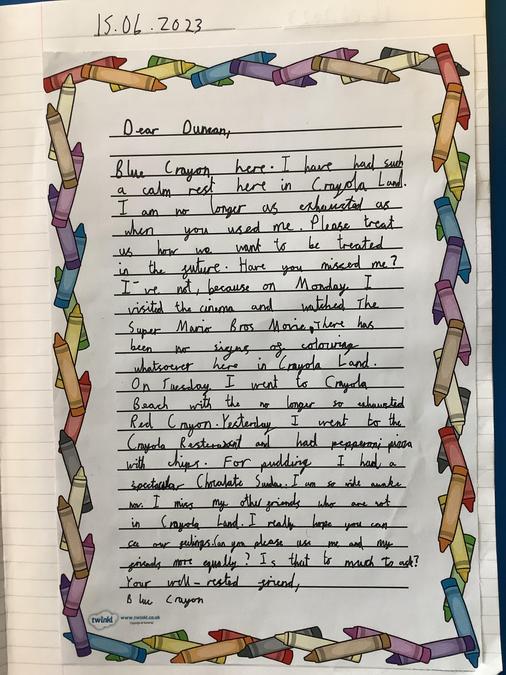 15.06.2023
Dear Duncan,
Blue Crayon here. I have had such
a calm rest here in Crayola Land.
I am no longer as exhausted as
when you used me. Please treat
us how we want to be treated
in the future. Have you missed me?
I've not, because on Monday I
visited the cinema and watched The
Super Mario Bros Movie. There has
been no signs of colouring
whatsoever here in Crayola Land.
On Tuesday I went to Crayola
Beach with the no longer so exhausted
Red Crayon. Yesterday I went to the
Crayola Restaurant and had pepperoni pizza
with chips. For pudding I had a
spectacular Chocolate Sundae. I am so wide awake
now. I miss my other friends who are not
in Crayola Land. I really hope you can
see our feelings. Can you please use me and my
friends more equally? Is that to much to ask?
Your well-rested friend,
Blue Crayon
twinkl www.twinkl.co.uk